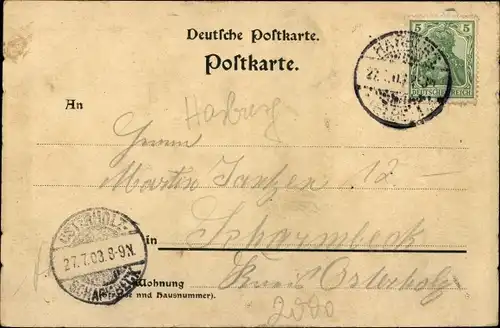 Deutsche Postkarte.
Postkarte.
5 5
DEUTSCHES REICH
HAMBURG
27.7.03
1
An
Harburg
Herrn
Martin Jantzen 12.-
OSTERHOLZ-
27.7.03. 8-9.N.
SCHARMBECK
in Scharmbeck
Wohnung Kreis Osterholz
(Straße und Hausnummer).
2000